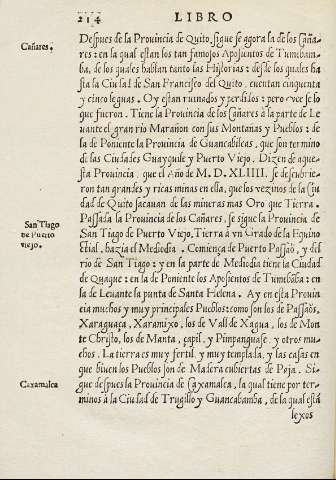 214 LIBRO
Cañares.
Despues de la Prouincia de Quito, sigue se agora la de los Caña-
res: en la qual estan los tan famosos Aposientos de Tumebam-
ba, de los quales hablan tanto las Historias: desde los quales ha
sta la Ciudad de San Francisco del Quito, cuentan cinquenta
y cinco leguas. Oy estan ruinados y perdidos: pero vee se lo
que fueron. Tiene la Prouincia de los Cañares à la parte de Le
uante el gran rio Marañon con sus Montañas y Pueblos: de
la de Poniente la Prouincia de Guancabilcas, que son termino
de las Ciudades Guayquile y Puerto Viejo. Dizen de aque-
sta Prouincia, que el Año de M. D. XLIIII. se descubrie-
ron tan grandes y ricas minas en ella, que los vezinos de la Ciu
dad de Quito sacauan de las mineras mas Oro que Tierra.
San Tiago
de Puerto
viejo.
Passada la Prouincia de los Cañares, se sigue la Prouincia de
San Tiago de Puerto Viejo, Tierra à vn Grado de la Equino
ctial, hazia el Mediodia. Comiença de Puerto Passaõ, y del
rio de San Tiago: y en la parte de Mediodia tiene la Ciudad
de Quaque: en la de Poniente los Aposientos de Tumebãba: en
la de Leuante la punta de Santa Helena. Ay en esta Prouin
cia muchos y muy principales Pueblos: como son los de Passaõs,
Xaraguaça, Xaramixo, los de Vall de Xagua, los de Mon
te Christo, los de Manta, çapil, y Pimpanguase, y otros mu-
chos. La tierra es muy fertil, y muy templada, y las casas en
que biuen los Pueblos son de Madera cubiertas de Paja. Si-
Caxamalca
gue despues la Prouincia de Caxamalca, la qual tiene por ter-
minos à la Ciudad de Trugillo y Guancabamba, de la qual està
lexos